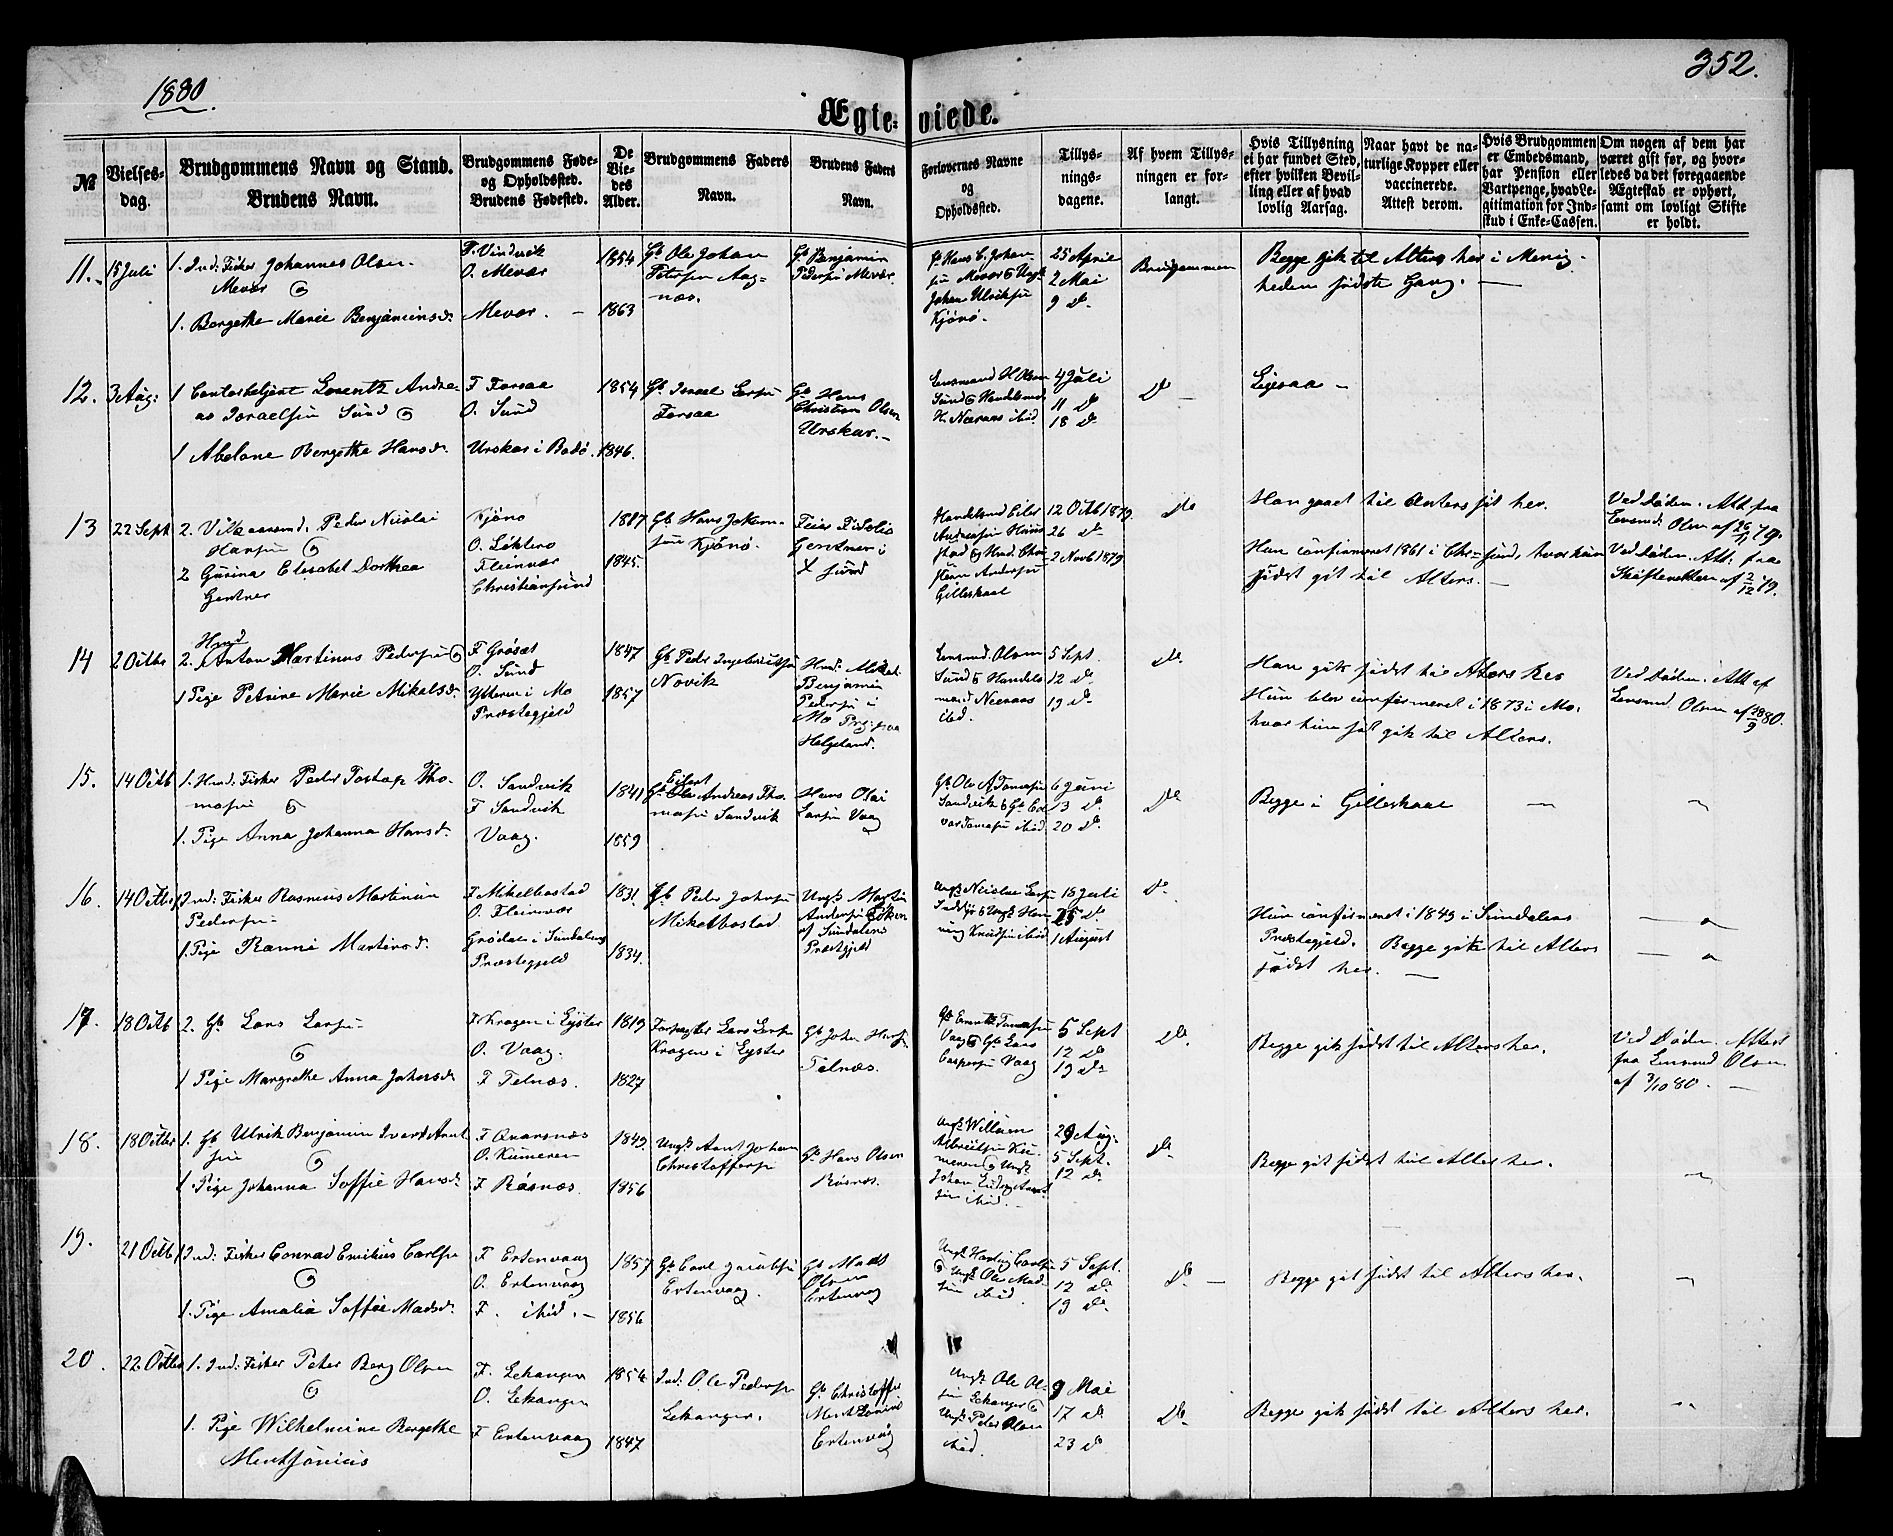 1880.
352.
Ægteviede.
№
Vielses-
dag.
Brudgommens Navn og Stand.
Brudens Navn.
Brudgommens Føde-
og Opholdssted.
Brudens Fødested.
De
Vie-
des
Alder.
Brudgommens Faders
Navn.
Brudens Faders
Navn.
Forlovernes Navne
og
Opholdssted.
Tillys-
nings-
dagene.
Af hvem Tillys-
ningen er for-
langt.
Hvis Tillysning
ei har fundet Sted,
efter hvilken Bevil-
ling eller af hvad
lovlig Aarsag.
Naar havt de na-
turlige Kopper eller
vaccinerede.
Attest derom.
Hvis Brudgommen
er Embedsmand,
har Pension eller
Vartpenge, hvad Le-
gitimation for Ind-
skud i Enke-Cassen.
Om nogen af dem har
været gift før, og hvor-
ledes da det foregaaende
Ægteskab er ophørt,
samt om lovligt Skifte
er holdt.
11. 15 Juli
1. Ind: Fisker Johannes Olsen
Mevær
1. Bergethe Marie Benjaminsd.
O. Mevær
Mevær. –
1854
1863
Gb Ole Johan
Petersen Aag-
næs.
Gb Benjamin
Pedersen Mevær.
Gb Hans C. Johan
sen Mevær & Ungk
Johan Ulriksen
Kjønø.
25 April
2 Mai
9 d.
Brudgommen
Begge gik til Alters her i Menig-
heden sidste Gang. –
12. 3 Aug:
1 Contorbetjent Lorentz Andre-
as Israelsen Sund
1 Abelone Bergethe Hansd.
F Forsaa
O. Sund
Urskar i Bodø.
1854
1846.
Gb Israel
Forsaa
Gb Hans
Christian Olsen
Urskar. –
Lensmand H Olsen
Sund & Handelsmd
H. Neeraas ibid.
4 Juli
11 d.
18 d.
d.
Ligesaa –
13 22 Sept
2. Peder Nicolai
Hansen
2 Gurina Elisabet Dorthea
Gentner
Kjønø
O.
Fleinvær
Christiansund
1845.
Gb Hans
sen Kjønø.
Gentner i
X sund
12 Octb 1879
26 d.
2 Novb 1879
Gilleskaal
d.
Han gaaet til Alters sidst her.
Hun confirmeret 1861 i Chr-sund, hvor hun
sidst gik til Alters. –
Ved Døden. Att fra
Lensmd: Olsen af 26/11 79.
Ved Døden. Att: fra
Skifteretten af 2/12 79.
14 2 Octbr
Hmd
2. Anton Martinus Pedersen
1 Pige Petrine Marie Mikelsd.
F Grøsæt
O. Sund
Ytteren i Mo
Præstegjeld
1847
1857
Gb Peder Ingebrictsen
Novik
Hmd. Mikal
Benjamin
Pedersen i
Mo Prgj. paa
Helgeland.
Lensmd. Olsen
Sund & Handels
mand Neeraas
ibid.
5 Sept.
12 d.
19 d.
d.
Han gik sidst til Alters her
Hun blev confirmeret i 1873 i Mo,
hvor hun sidst gik til Alters.
Ved Døden. Att af
Lensmd. Olsen af 28/9 80.
15. 14 Octb
1. Hmd. Fisker Peder Tho-
masen
1. Pige Anna Johanna Hansd.
O. Sandvik
F Sandvik
Vaag.
1841
1859
Eilert
Gb Ole Andreas Tho-
masen Sandvik
Hans Olai
Larsen Vaag
Gb Ole A Tomasen
Sandvik & Gb Ed-
var Tomasen ibid.
6 Juni
13 d.
20 d.
d.
Begge i Gilleskaal
16. 14 Octbr
1 Ind. Fisker Rasmus Martinus
Pedersen
1. Pige Ranni Martinsd.
F Mikelbostad
O. Fleinvær
Grødal i Sundalens
Præstegjeld
1831.
1834.
Gb Peder Johnsen
Mikelbostad
Ungk Martin
Andersen
af Sundalens
Præstgjeld
Ungk Nicolai
Inddyr & Ungk Hen-
ning Knudsen ibid
18 Juli
25 d.
1 August
d.
Hun confirmeret i 1849 i Sundalens
Præstegjeld. Begge gik til Alters
sidst her. –
17. 18 Octb
2. Gb Lars Larsen
1 Pige Margrethe Anna Johnsd.
F Kragen i Lyster
O. Vaag.
F Telnæs.
1819
1827
Forpagter Lars Larsen
Kragen i Lyster
Gb John
Telnæs.
Gb Tomasen
Vaag & Gb Lars
Caspersen Vaag
5 Sept
12 d.
19 d.
d.
Begge gik sidst til Alters her.
Ved Døden. Attest
fra Lensmd Olsen
af 7/10 80. –
18. 18 Octbr
1. Gb Ulrik Benjamin Arnt
sen
1. Pige Johanna Soffie Hansd.
F Kvarsnæs
O. Kumeren
F Røsnæs
1849
1856
Ungk Arnt Johan
Christoffersen
Gb Hans Olsen
Røsnæs.
Ungk Willum
Albrictsen Ku-
meren & Ungk
Johan Ludvig Arnt-
sen ibid. –
29 Aug.
5 Sept.
12 d.
d.
Begge gik sidst til Alters her.
19. 21 Octb
1 Ind: Fisker Conrad Emilius Carlsen
1. Pige Amalia Soffie Madsd.
F Ertenvaag
O. Ertenvaag
F. ibid. –
1857
1856
Gb Carl Jacobsen
Ertenvaag.
Gb Mads
Olsen
Ertenvag
Ungk Hartvig Carlsen
& Ungk Ole Mad
sen ibid.
5 Sept.
12 d.
19 d.
d. –
Begge gik sidst til Alters her.
20. 22 Octbr
1. Ind: Fisker Peter Berg Olsen
1. Pige Wilhelmine Bergethe
Mentsonius
F. Lekanger
O. Lekanger
F Ertenvaag
1854
1847
Ind: Ole Pedersen
Lekanger.
Gb Christoffer
Ertenvag
Ungk Ole Ol-
sen Lekanger &
Ungk Peter Olsen
ibid.
9 Mai
17 d.
23 d.
d.
Begge gik sidst til Alters her.